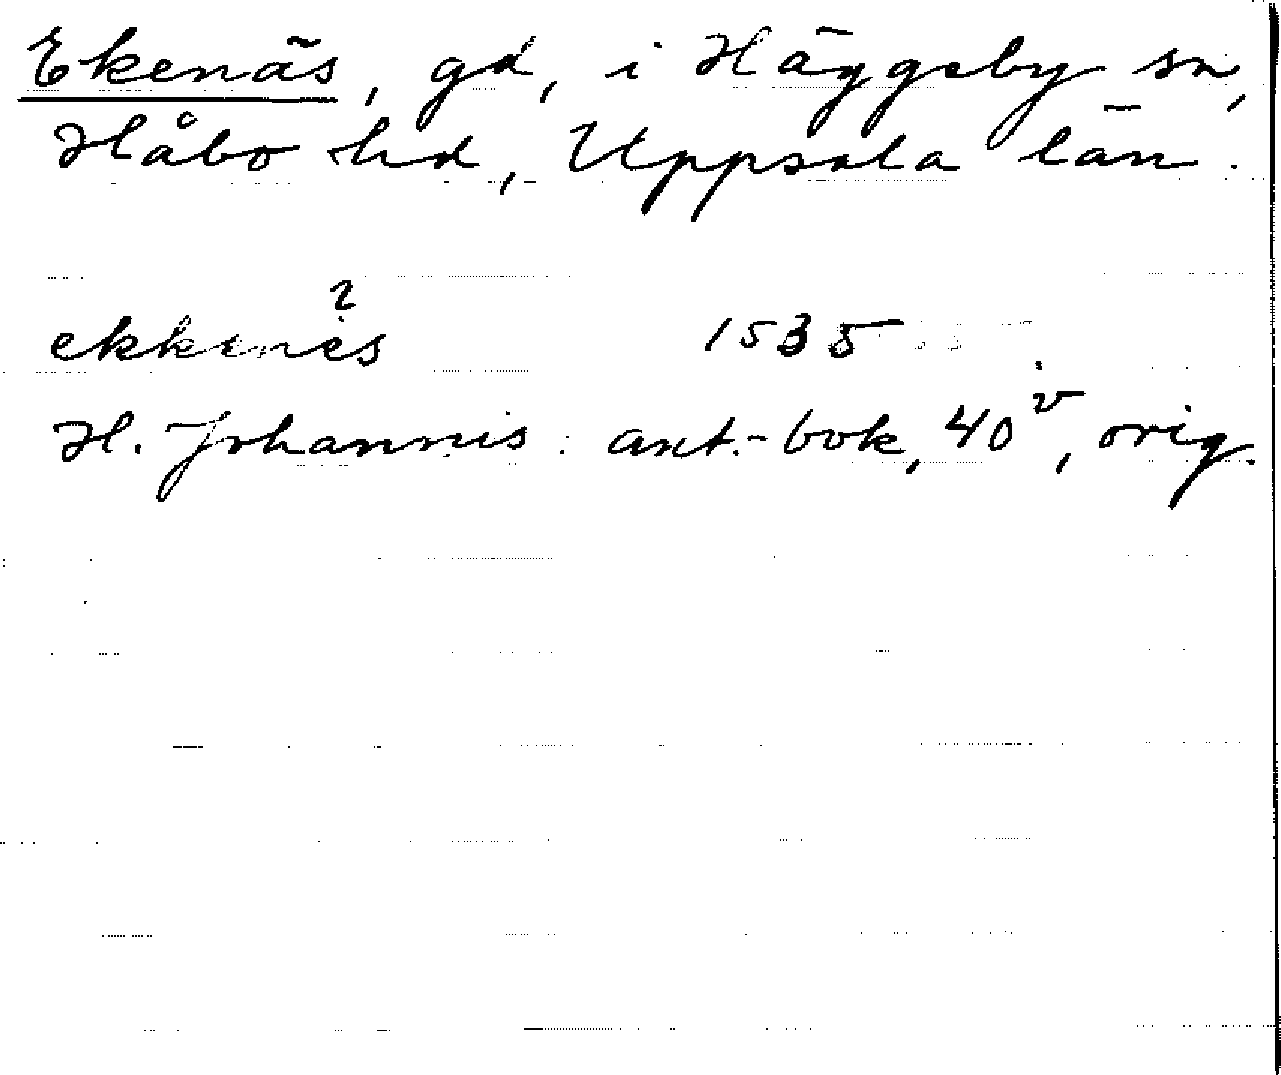 Ekenäs, gd, i Häggeby sn,
Håbo hd, Uppsala län.
?
ekkenes 1535
H. Johannis: ant.-bok, 40v, orig.